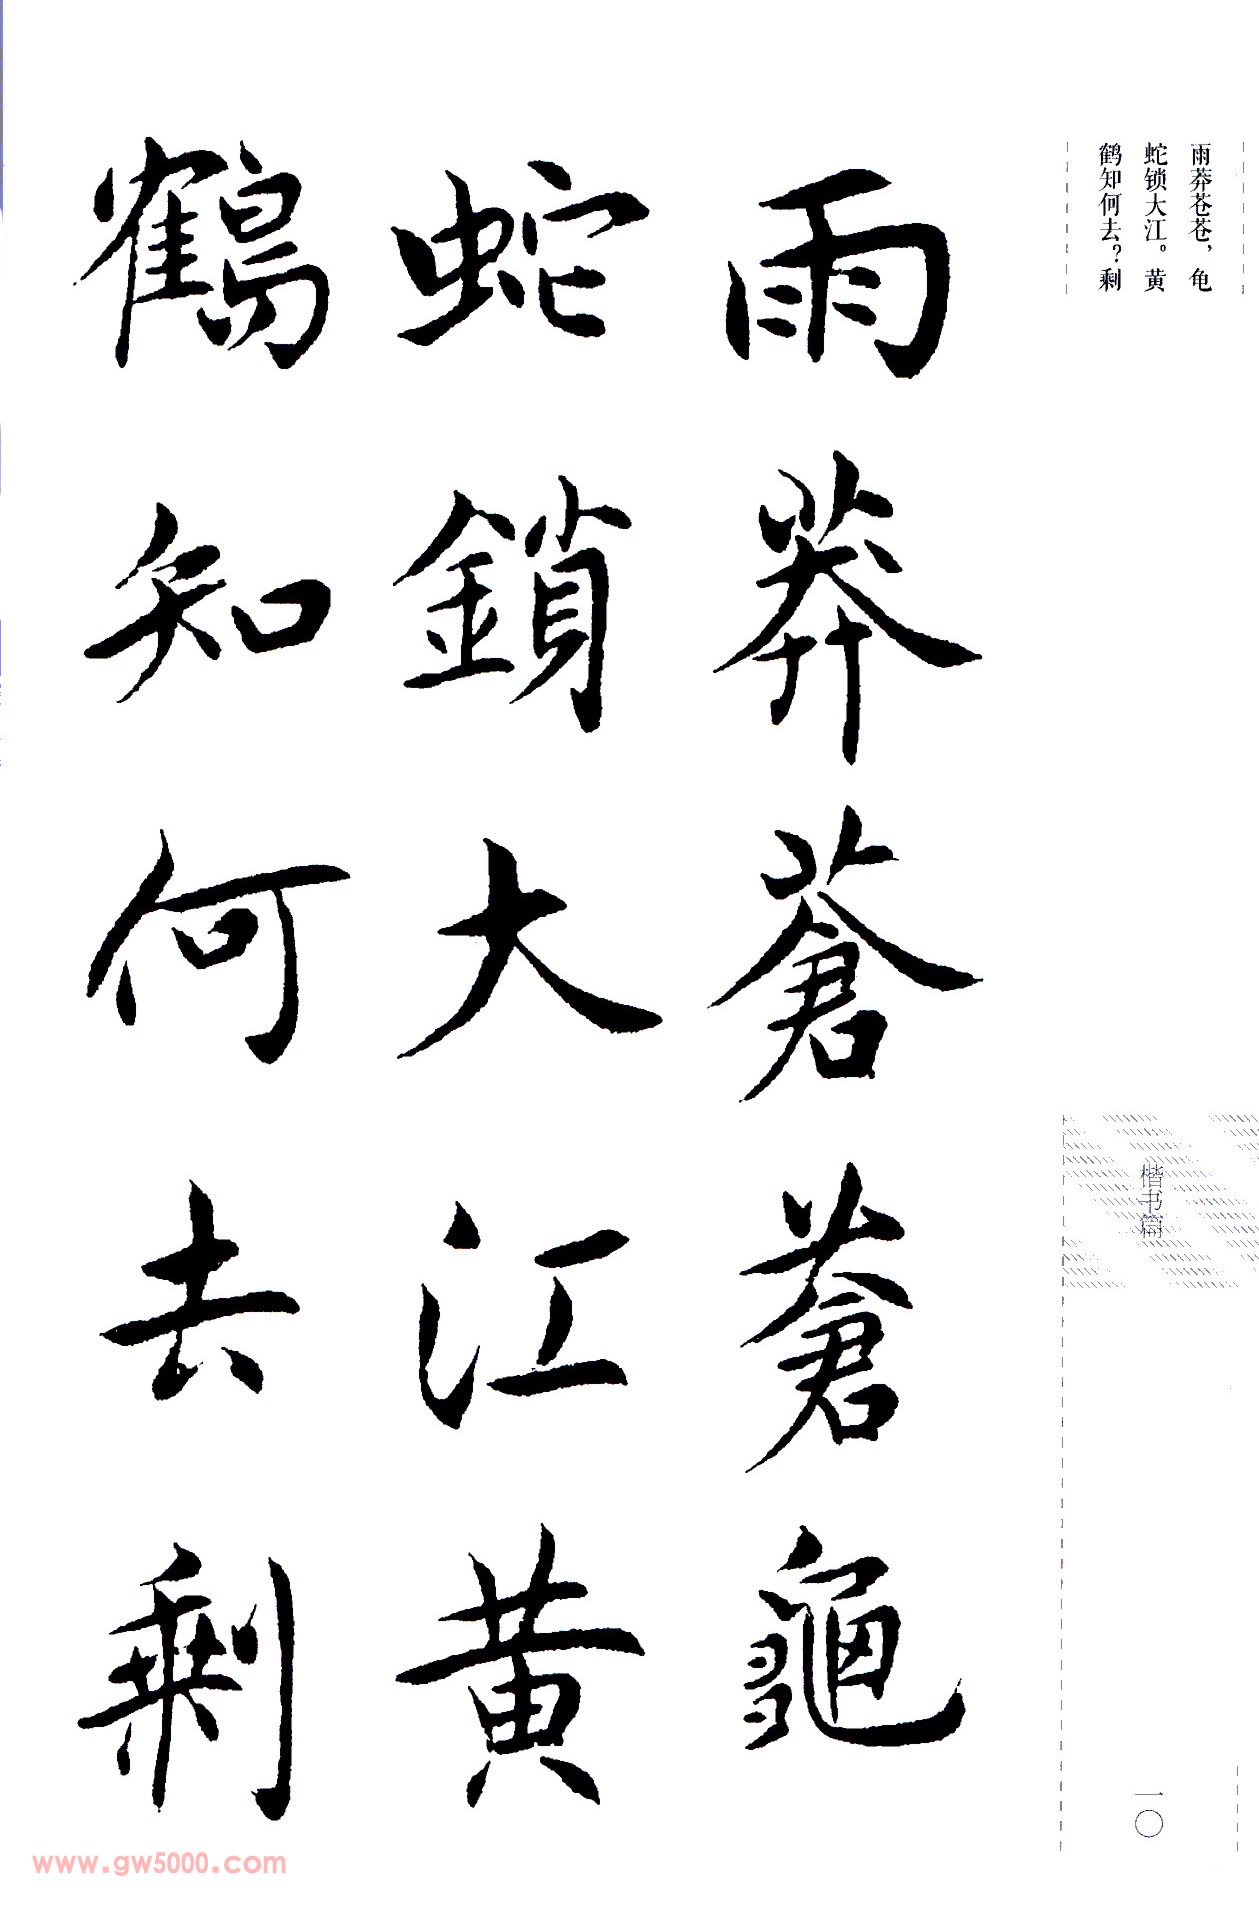 雨莽苍苍，龟
蛇锁大江。黄
鹤知何去？剩
雨莽蒼蒼龜
蛇鎖大江黄
鶴知何去剩
楷书篇
一〇
www.gw5000.com